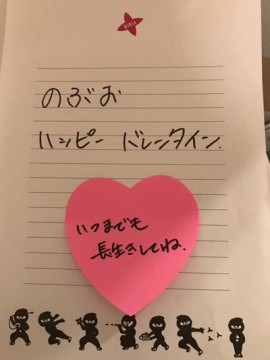 のぶお
ハッピー バレンタイン.
いつまでも
長生きしてね.